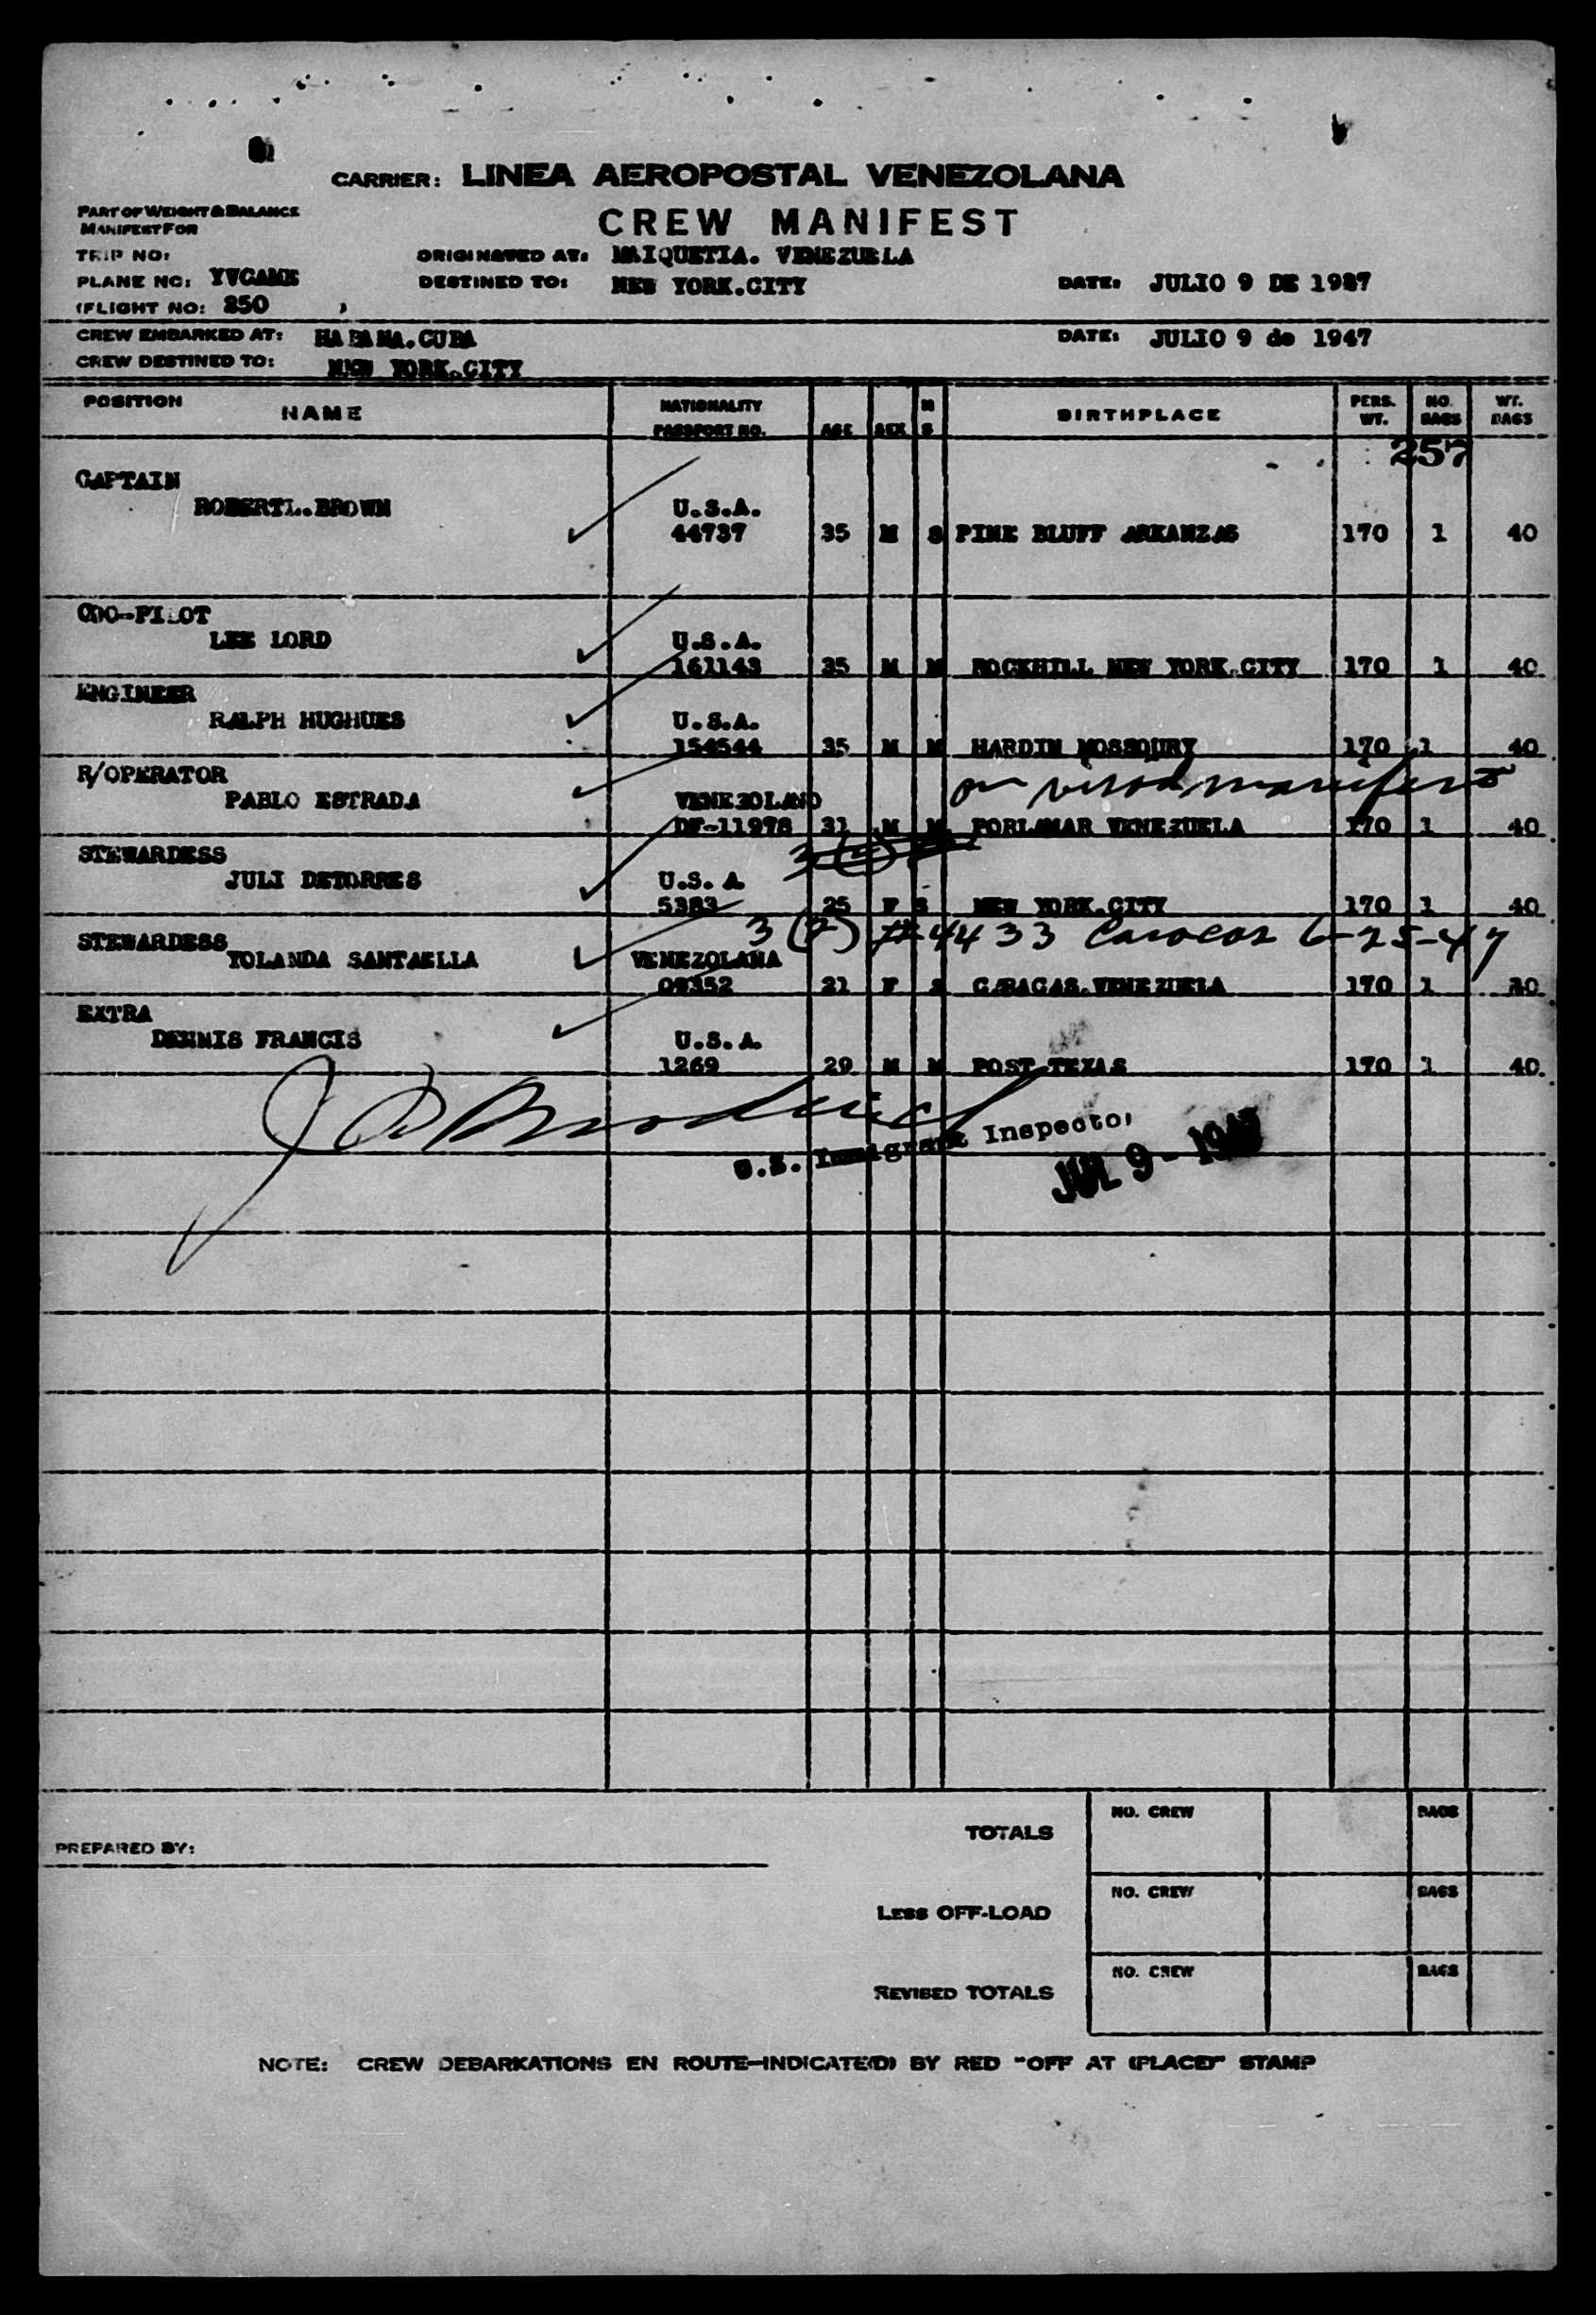 CARRIER: LINEA AEROPOSTAL VENEZOLANA
PART OF WEIGHT & BALANCE
MANIFEST FOR
CREW MANIFEST
TRIP NO:
ORIGINATED AT: MAIQUETIA. VENEZUELA
PLANE NO: YVCAME
DESTINED TO: NEW YORK.CITY
DATE: JULIO 9 DE 1987
(FLIGHT NO: 250 )
CREW EMBARKED AT: HABANA.CUBA
DATE: JULIO 9 de 1947
CREW DESTINED TO: NEW YORK.CITY
POSITION NAME NATIONALITY PASSPORT NO. AGE SEX M S BIRTHPLACE PERS. WT. NO. BAGS WT. BAGS
257
CAPTAIN
ROBERTL.BROWN U.S.A.
44737 35 M S PINE BLUFF ARKANZAS 170 1 40
COO-PILOT
LEE LORD U.S.A.
161143 35 M M ROCKHILL NEW YORK.CITY 170 1 40
ENGINEER
RALPH HUGHUES U.S.A.
154544 35 M M HARDIN MOSSOURY 170 1 40
R/OPERATOR
on visa manifest
PABLO ESTRADA VENEZOLANO
DF-11978 31 M M PORLAMAR VENEZUELA 170 1 40
STEWARDESS
JULI DETORRES U.S. A
5383 25 F S NEW YORK.CITY 170 1 40
STEWARDESS 3 (2) 4433 Caracas 6-25-47
YOLANDA SANTAELLA VENEZOLANA
09352 21 F S CARACAS.VENEZUELA 170 1 30
EXTRA
DENNIS FRANCIS U.S.A.
1269 29 M M POST TEXAS 170 1 40.
U.S. Immigrant Inspector
JUL 9 - 1947
TOTALS NO. CREW BAGS
PREPARED BY:
LESS OFF-LOAD NO. CREW BAGS
REVISED TOTALS NO. CREW BAGS
NOTE: CREW DEBARKATIONS EN ROUTE-INDICATE(D) BY RED "OFF AT (PLACE)" STAMP